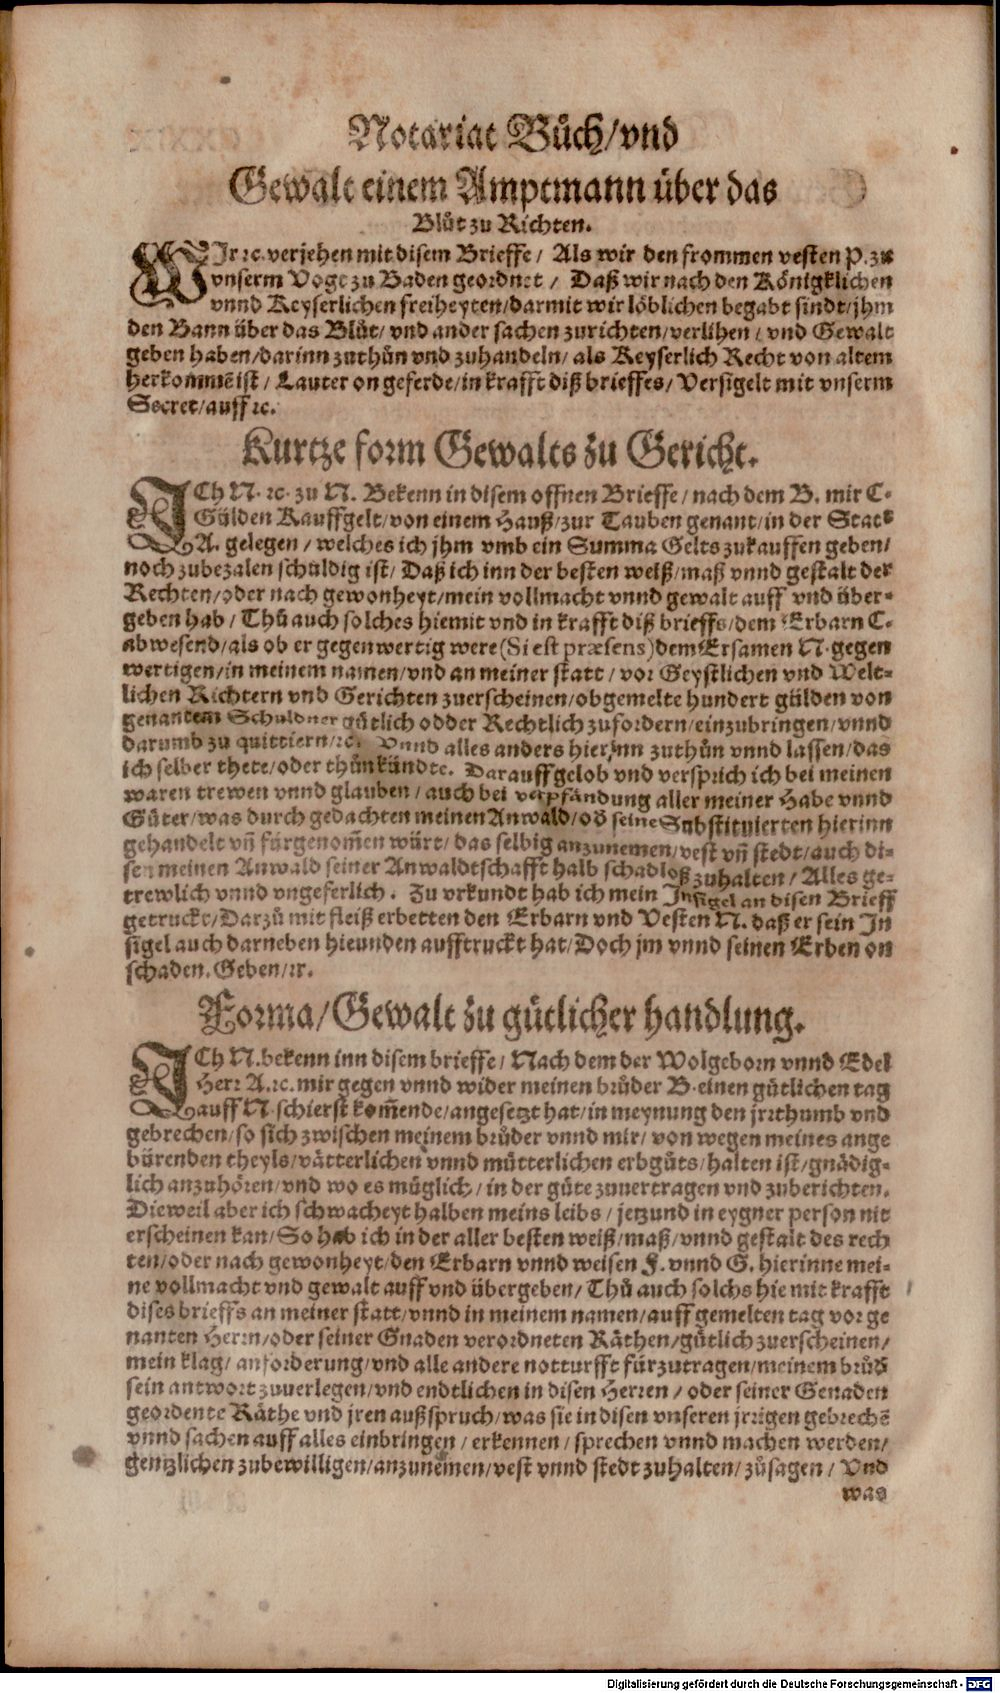 Notariat Bůch/vnd
Gewalt einem Amptmann über das
Blůt zu Richten.
WIr ꝛc. verjehen mit disem Brieffe / Als wir den frommen vesten P. zu
vnserm Vogt zu Baden geordnet / Daß wir nach den Königklichen
vnnd Keyserlichen freiheyten/darmit wir löblichen begabt sindt/jhm
den Bann über das Blůt/ vnd ander sachen zurichten/verlihen / vnd Gewalt
geben haben/darinn zuthůn vnd zuhandeln/ als Keyserlich Recht von altem
herkom̃e ist / Lauter on geferde/in krafft diß brieffes/ Versigelt mit vnserm
Secret/auff ꝛc.
Kurtze form Gewalts zu Gericht.
ICh N. ꝛc. zu N. Bekenn in disem offnen Brieffe / nach dem B. mir C.
Gülden Kauffgelt/von einem Hauß/zur Tauben genant/in der Statt
A. gelegen / welches ich jhm vmb ein Summa Gelts zukauffen geben/
noch zubezalen schuldig ist/ Daß ich inn der besten weiß/maß vnnd gestalt der
Rechten/oder nach gewonheyt/mein vollmacht vnnd gewalt auff vnd über-
geben hab / Thů auch solches hiemit vnd in krafft diß brieffs/dem Erbarn C.
abwesend/als ob er gegenwertig were (Si est præsens) dem Ersamen N. gegen
wertigen/in meinem namen/vnd an meiner statt / vor Geystlichen vnd Welt-
lichen Richtern vnd Gerichten zuerscheinen/obgemelte hundert gülden von
genantem Schuldner gütlich odder Rechtlich zufordern/einzubringen/vnnd
darumb zu quittiern/ꝛc. Vnnd alles anders hierinn zuthůn vnnd lassen/das
ich selber thete/oder thůn kündte. Darauff gelob vnd versprich ich bei meinen
waren trewen vnnd glauben / auch bei verpfändung aller meiner Habe vnnd
Güter/was durch gedachten meinen Anwald/ oď seine Substituierten hierinn
gehandelt vñ fürgenom̃en würt/ das selbig anzunemen/vest vñ stedt/auch di-
sen meinen Anwald seiner Anwaldtschafft halb schadloß zuhalten / Alles ge-
trewlich vnnd vngeferlich. Zu vrkundt hab ich mein Insigel an disen Brieff
getruckt/Darzů mit fleiß erbetten den Erbarn vnd Vesten N. daß er sein In
sigel auch darneben hieunden aufftruckt hat/Doch jm vnnd seinen Erben on
schaden. Geben/ꝛc.
Forma/Gewalt zu gütlicher handlung.
ICh N. bekenn inn disem brieffe/ Nach dem der Wolgeborn vnnd Edel
Herr A. ꝛc. mir gegen vnnd wider meinen brůder B. einen gütlichen tag
auff N. schierst kom̃ende/angesetzt hat/in meynung den jrrthumb vnd
gebrechen/so sich zwischen meinem brůder vnnd mir/ von wegen meines ange
bürenden theyls/vätterlichen vnnd mütterlichen erbgůts/halten ist/gnädig-
lich anzuhören/vnd wo es müglich/ in der güte zuuertragen vnd zuberichten.
Dieweil aber ich schwacheyt halben meins leibs / jetzund in eygner person nit
erscheinen kan/So hab ich in der aller besten weiß/maß/vnnd gestalt des rech
ten/oder nach gewonheyt/den Erbarn vnnd weisen F. vnnd G. hierinne mei-
ne vollmacht vnd gewalt auff vnd übergeben/ Thů auch solchs hie mit krafft
dises brieffs an meiner statt/vnnd in meinem namen/auff gemelten tag vor ge
nanten Herrn/oder seiner Gnaden verordneten Räthen/gütlich zuerscheinen/
mein klag/ anforderung/vnd alle andere notturfft fürzutragen/meinem brůď
sein antwort zuuerlegen/vnd endtlichen in disen Herren / oder seiner Genaden
geordente Räthe vnd jren außspruch/was sie in disen vnseren jrrigen gebrechẽ
vnnd sachen auff alles einbringen / erkennen / sprechen vnnd machen werden/
gentzlichen zubewilligen/anzunem̃en/vest vnnd stedt zuhalten/ zůsagen / Vnd
was
Digitalisierung gefördert durch die Deutsche Forschungsgemeinschaft - DFG